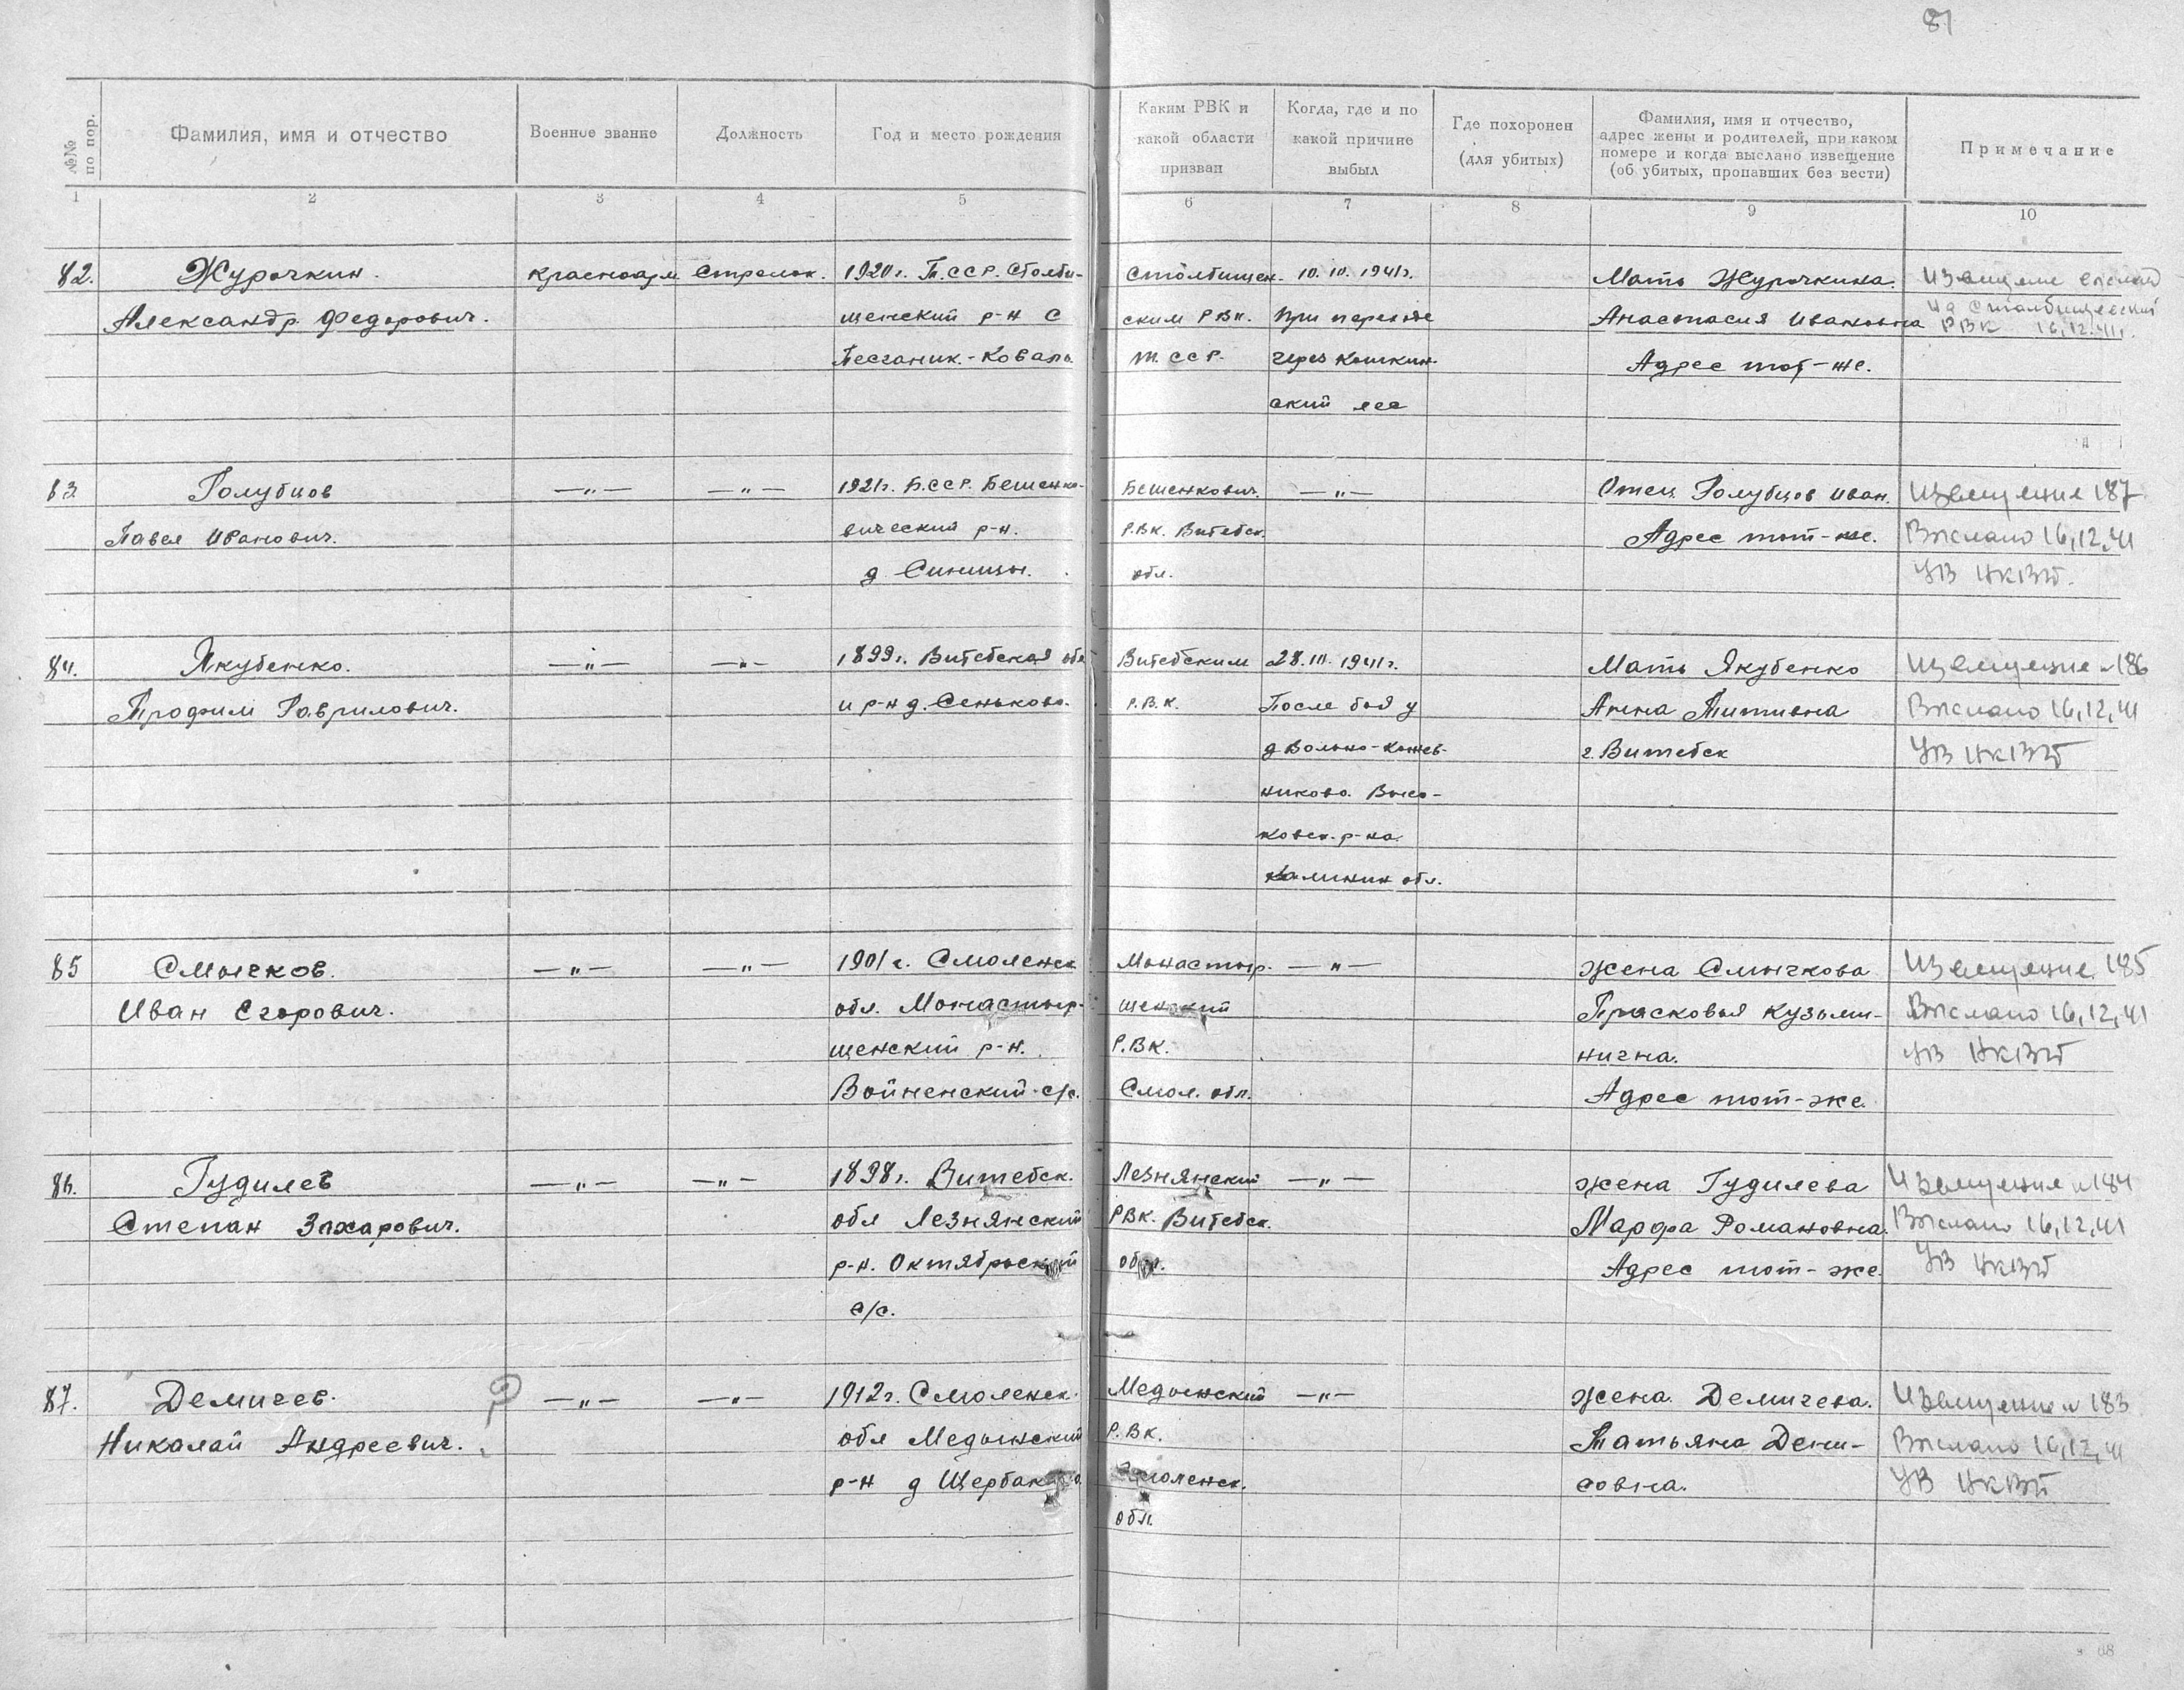 81
№№ по пор.
Фамилия, имя и отчество
Военное звание
Должность
Год и место рождения
Каким РВК и какой области призван
Когда, где и по какой причине выбыл
Где похоронен (для убитых)
Фамилия, имя и отчество, адрес жены и родителей, при каком номере и когда выслано извещение (об убитых, пропавших без вести)
Примечание
1 2 3 4 5 6 7 8 9 10
82. Журочкин. Красноарм Стрелок. 1920г. Т.ССР. Столби- Столбищен- 10.10.1941г. Мать Журочкина. Извещение
Александр Федорович. щенский р-н С ским РВК. При переходе Анастасия Ивановна на Столбищевский
Песчаник.-Ковали Т.ССР. через Кошкин- Адрес тот-же. РВК 16,12.41г.
ский лес
83 Голубцов —"— —"— 1921г. Б.ССР. Бешенко- Бешенкович. —"— Отец Голубцов Иван. Извещение 187
Павел Иванович. вический р-н. Р.ВК. Витебск. Адрес тот-же. Выслано 16,12,41
д Синицы. обл. УВ НКВД.
84. Якубенко. —"— —"— 1899г. Витебская обл Витебским 28.10.1941г. Мать Якубенко Извещение №186
Трофим Гаврилович. и р-н д. Сеньково. Р.В.К. После боя у Анна Титивна Выслано 16,12,41
д Вольно-Кожев- г. Витебск УВ НКВД
никово. Высо-
ковск. р-на.
Калинин обл.
85 Смычков. —"— —"— 1901г. Смоленск Монастыр. —"— жена Смычкова Извещение 185
Иван Егорович. обл. Монастыр- щенский Прасковья Кузьми- Выслано 16,12,41
щенский р-н. Р.ВК. нична. УВ НКВД
Войненский-с/с. Смол. обл. Адрес тот-же.
86. Гудилев —"— —"— 1898г. Витебск. Лезнянский —"— жена Гудилева Извещение №184
Степан Захарович. обл Лезнянский РВК. Витебск. Марфа Романовна. Выслано 16,12,41
р-н. Октябрьский обл. Адрес тот-же. УВ НКВД
с/с.
87. Демичев. —"— —"— 1912г. Смоленск. Медынский —"— жена. Демичева. Извещение № 183
Николай Андреевич. обл Медынский Р.ВК. Татьяна Дени- Выслано 16,12,41
р-н д Щербаково Смоленск. совна. УВ НКВД
обл.